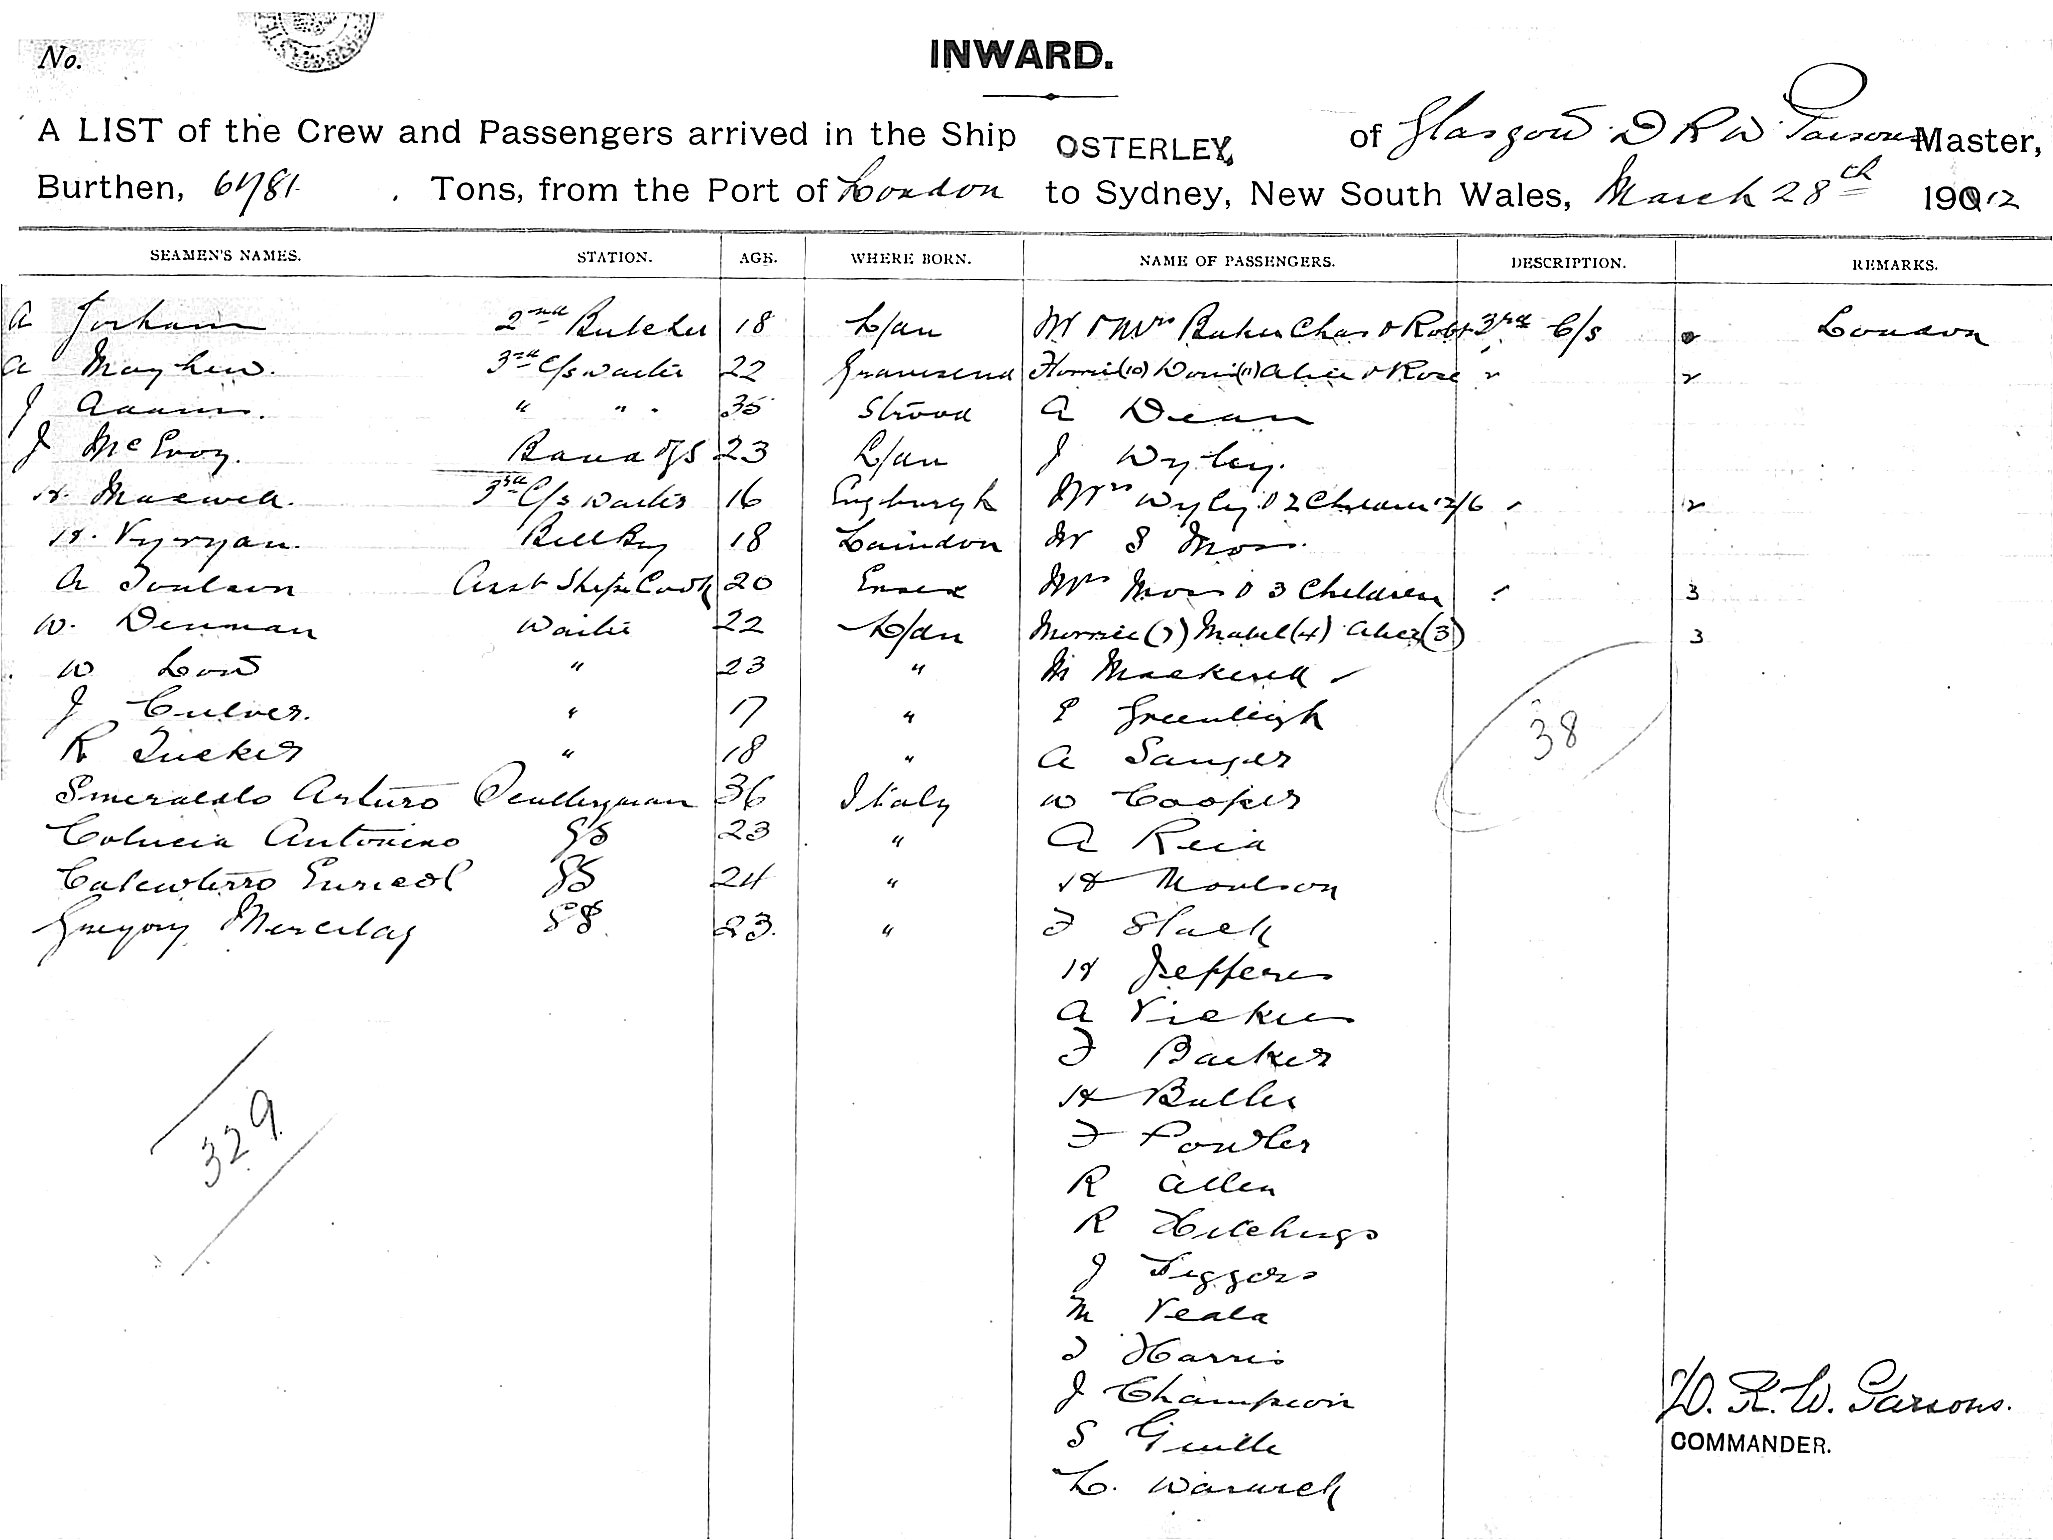 No.
INWARD.
A LIST of the Crew and Passengers arrived in the Ship OSTERLEY, of Glasgow D R W Parsons Master,
Burthen, Tons, from the Port of London to Sydney, New South Wales, March 28th 190 12
SEAMEN'S NAMES. STATION. AGE. WHERE BORN. NAME OF PASSENGERS. DESCRIPTION. REMARKS.
A 2nd Butcher 18 L/dn Mr & Mrs Baker Chas & Robt 3rd C/s 2 London
A Mayhew. 3rd C/s waiter 22 Gravesend (10) (11) Alice & Rose " 2
J Adams. " " . 35 Strood A Dean
J McEvoy. 23 L/dn J Wyley.
H. Maxwell. 3rd C/s waiter 16 Mrs Wyley & 2 Children 12/6 " 2
H. Vyvyan. Bell Boy 18 Laindon Mr S Moss.
A Toulson Asst Ships Cook 20 Essex Mrs Moss & 3 Children " 3
W. Denman Waiter 22 L/dn (7) Mabel (4) Alice (3) 3
W Low " 23 " M
J Culver. " 17 " E Greenleigh
R Tucker " 18 " A Sanger
38
Smeraldo Arturo 36 Italy W Cooper
Antonino GS 23 " A Reid
GS 24 " H Moulson
Gregory GS 23. " F Slack
H Jefferies
A Vickers
F Barker
H Butler
F Fowler
R Allen
329
R Hitchings
J Siggers
M Veale
J Harris
J Champion
D. R. W. Parsons.
S Guille
COMMANDER.
L. Warwick